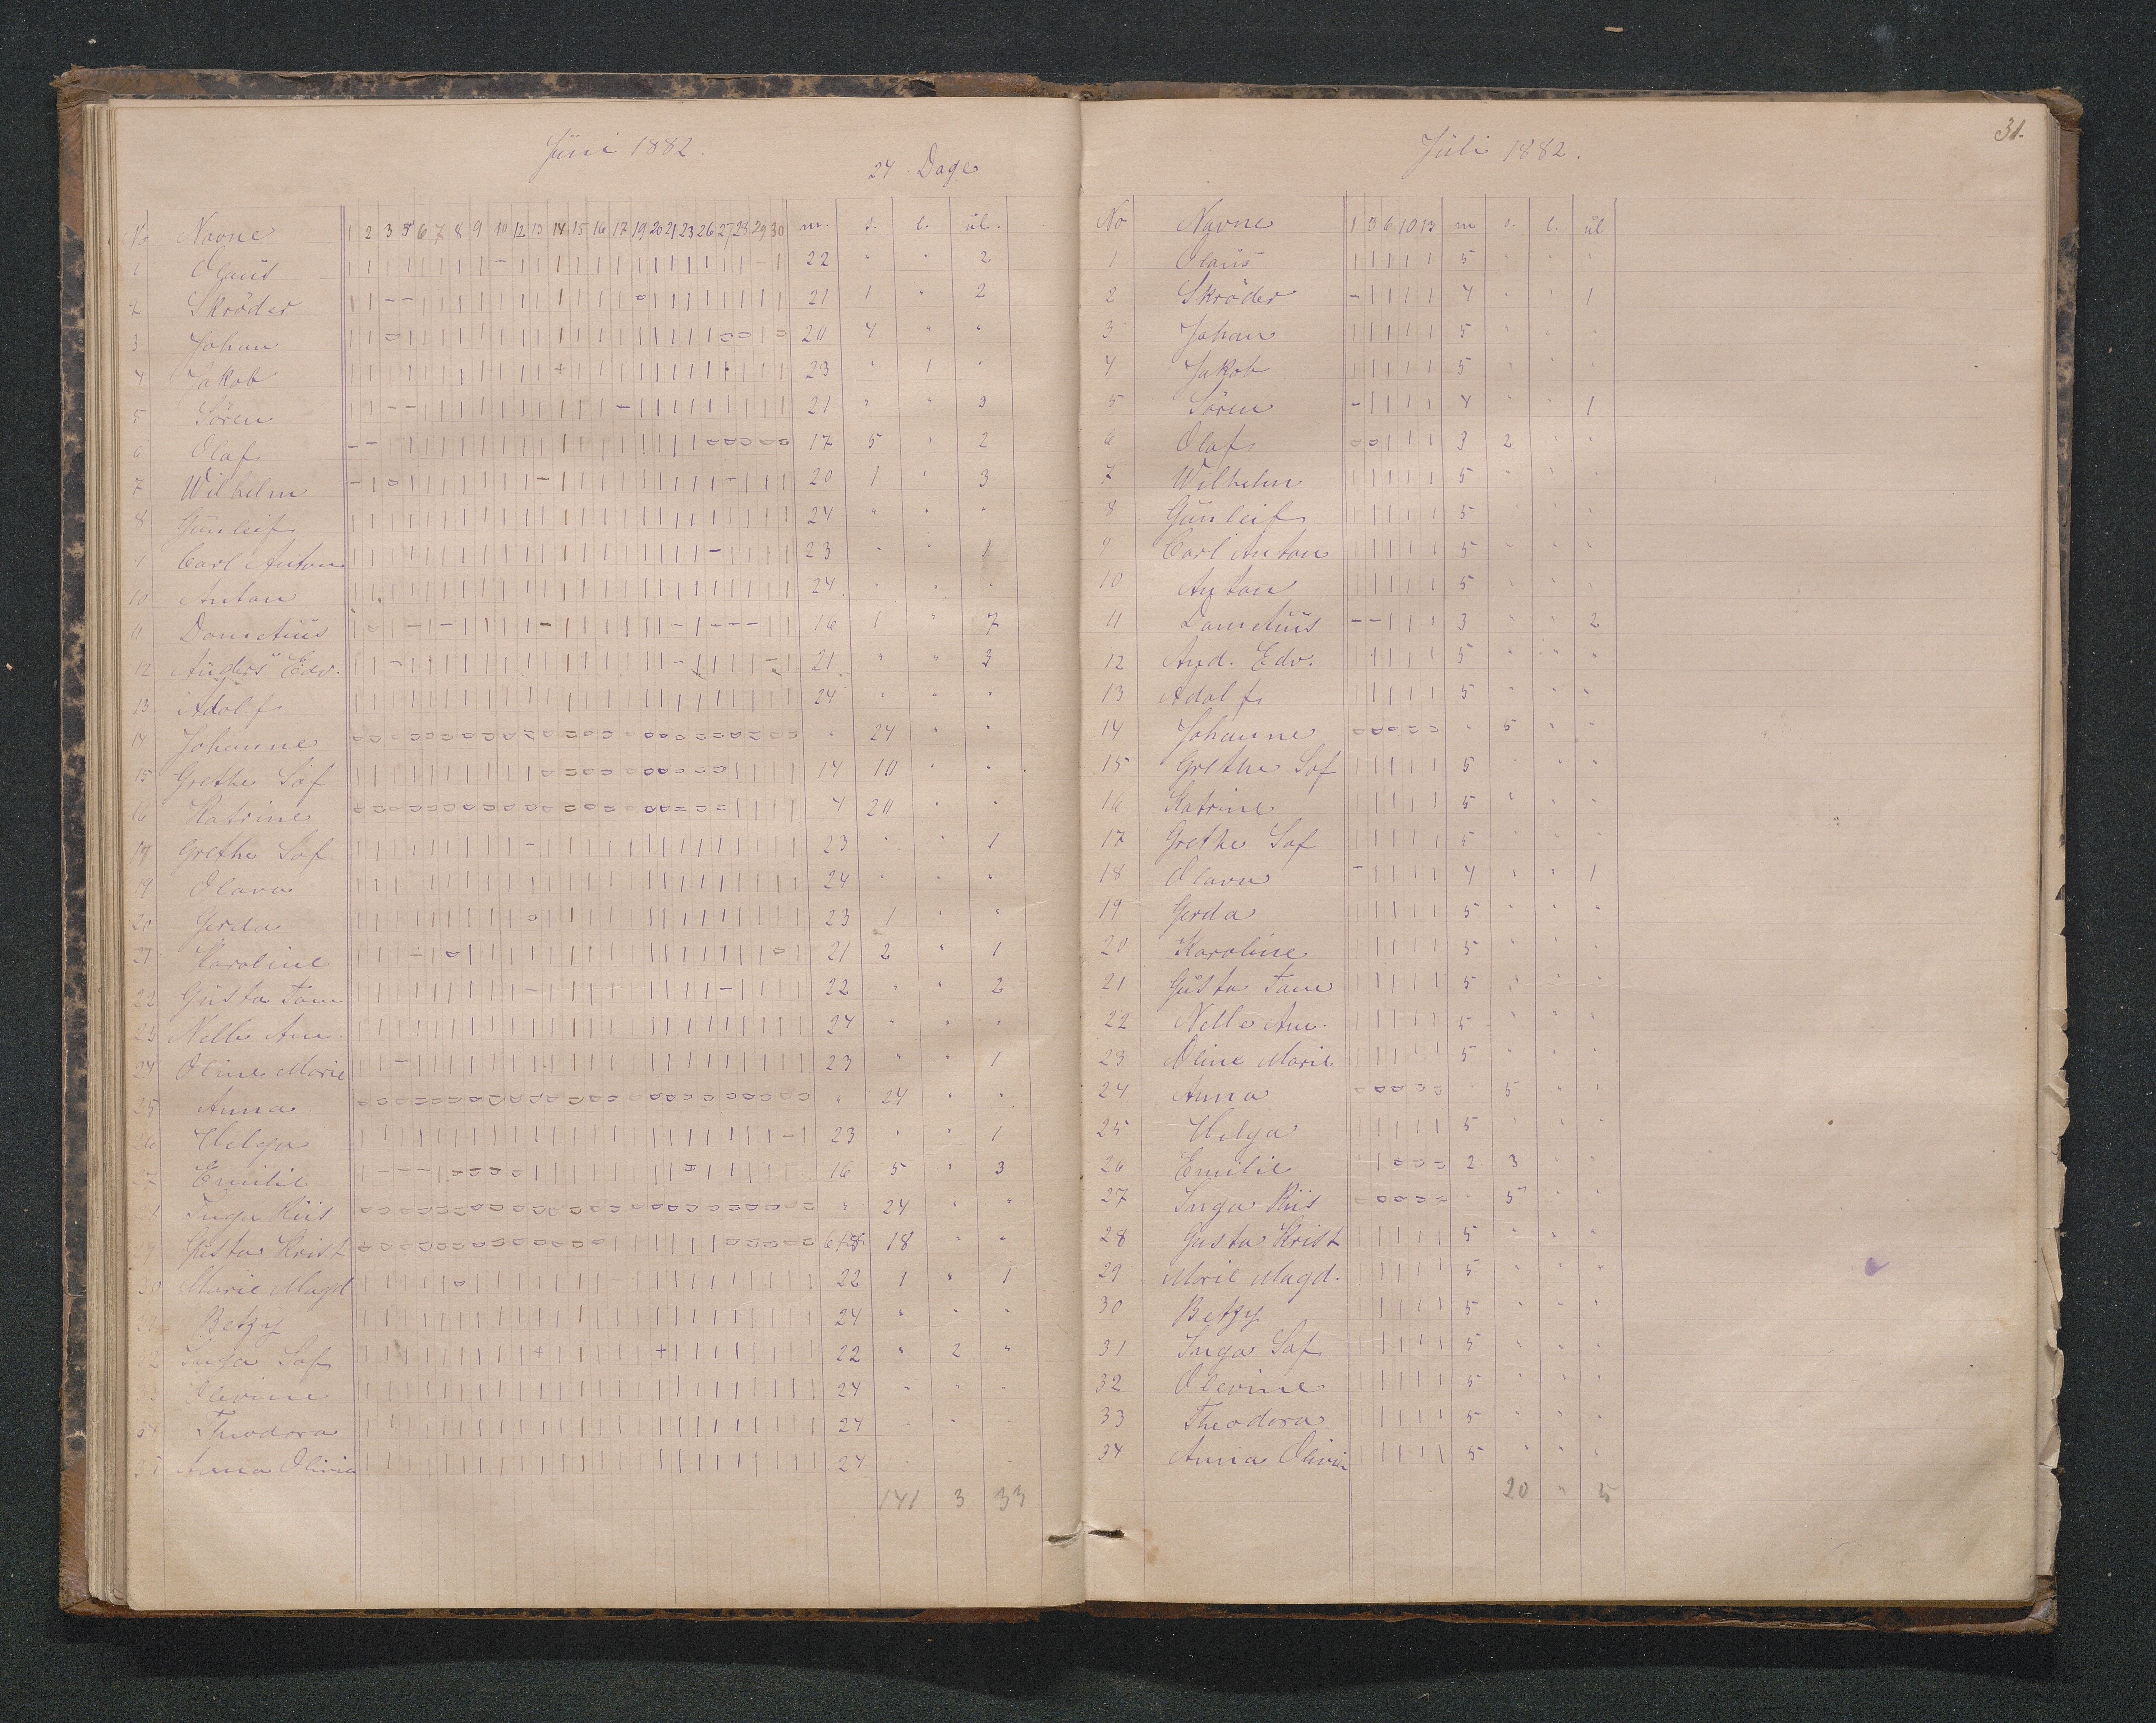 Jŭni 1882.
24 Dage
No Navne 1 2 3 5 6 7 8 9 10 12 13 14 15 16 17 19 20 21 23 26 27 28 29 30 m. s. l. ŭl.
1 Olaŭs 22 " " 2
2 Skröder 21 1 " 2
3 Johan 20 4 " "
4 Jakob 23 " 1 "
5 Sören 21 " " 3
6 Olaf 17 5 " 2
7 Wilhelm 20 1 " 3
8 Gŭnleif 24 " " "
9 Carl Anton 23 " " 1
10 Anton 24 " " "
11 16 1 " 7
12 Anders Edv. 21 " " 3
13 Adolf 24 " " "
14 Johanne " 24 " "
15 Grethe Sof 14 10 " "
16 Katrine 4 20 " "
Grethe Sof 23 " " 1
19 Olava 24 " " "
20 Gerda 23 1 " "
21 Karoline 21 2 " 1
22 Gŭsta Tom 22 " " 2
23 Nelle Am. 24 " " "
24 Oline Marie 23 " " 1
25 Anna " 24 " "
26 Helga 23 " " 1
27 Emilie 16 5 " 3
28 Inga Riis " 24 " "
29 Gŭsta Krist 6 18 " "
30 Marie Magd 22 1 " 1
31 Betzy 24 " " "
32 Inga Sof 22 " 2 "
33 Olevine 24 " " "
34 Theodora 24 " " "
35 Anna Olivia 24 " "
141 3 33
31.
Jŭli 1882.
No Navne 1 3 6 10 13 m s. l. ŭl
1 Olaŭs 5 " " "
2 Skröder 4 " " 1
3 Johan 5 " " "
4 Jakob 5 " " "
5 Sören 4 " " 1
6 Olaf 3 2 " "
7 Wilhelm 5 " " "
8 Gŭnleif 5 " " "
9 Carl Anton 5 " " "
10 Anton 5 " " "
11 3 " " 2
12 And. Edv. 5 " " "
13 Adolf 5 " " "
14 Johanne " 5 " "
15 Grethe Sof 5 " " "
16 Katrine 5 " " "
17 Grethe Sof 5 " " "
18 Olava 4 " " 1
19 Gerda 5 " " "
20 Karoline 5 " " "
21 Gŭsta Tom 5 " " "
22 Nelle Am. 5 " " "
23 Oline Marie 5 " " "
24 Anna " 5 " "
25 Helga 5 " " "
26 Emilie 2 3 " "
27 Inga Riis " 5 " "
28 Gusta Krist 5 " " "
29 Marie Magd. 5 " " "
30 Betzy 5 " " "
31 Inga Sof 5 " " "
32 Olevine 5 " " "
33 Theodora 5 " " "
34 Anna Olivia 5 " " "
20 " 5